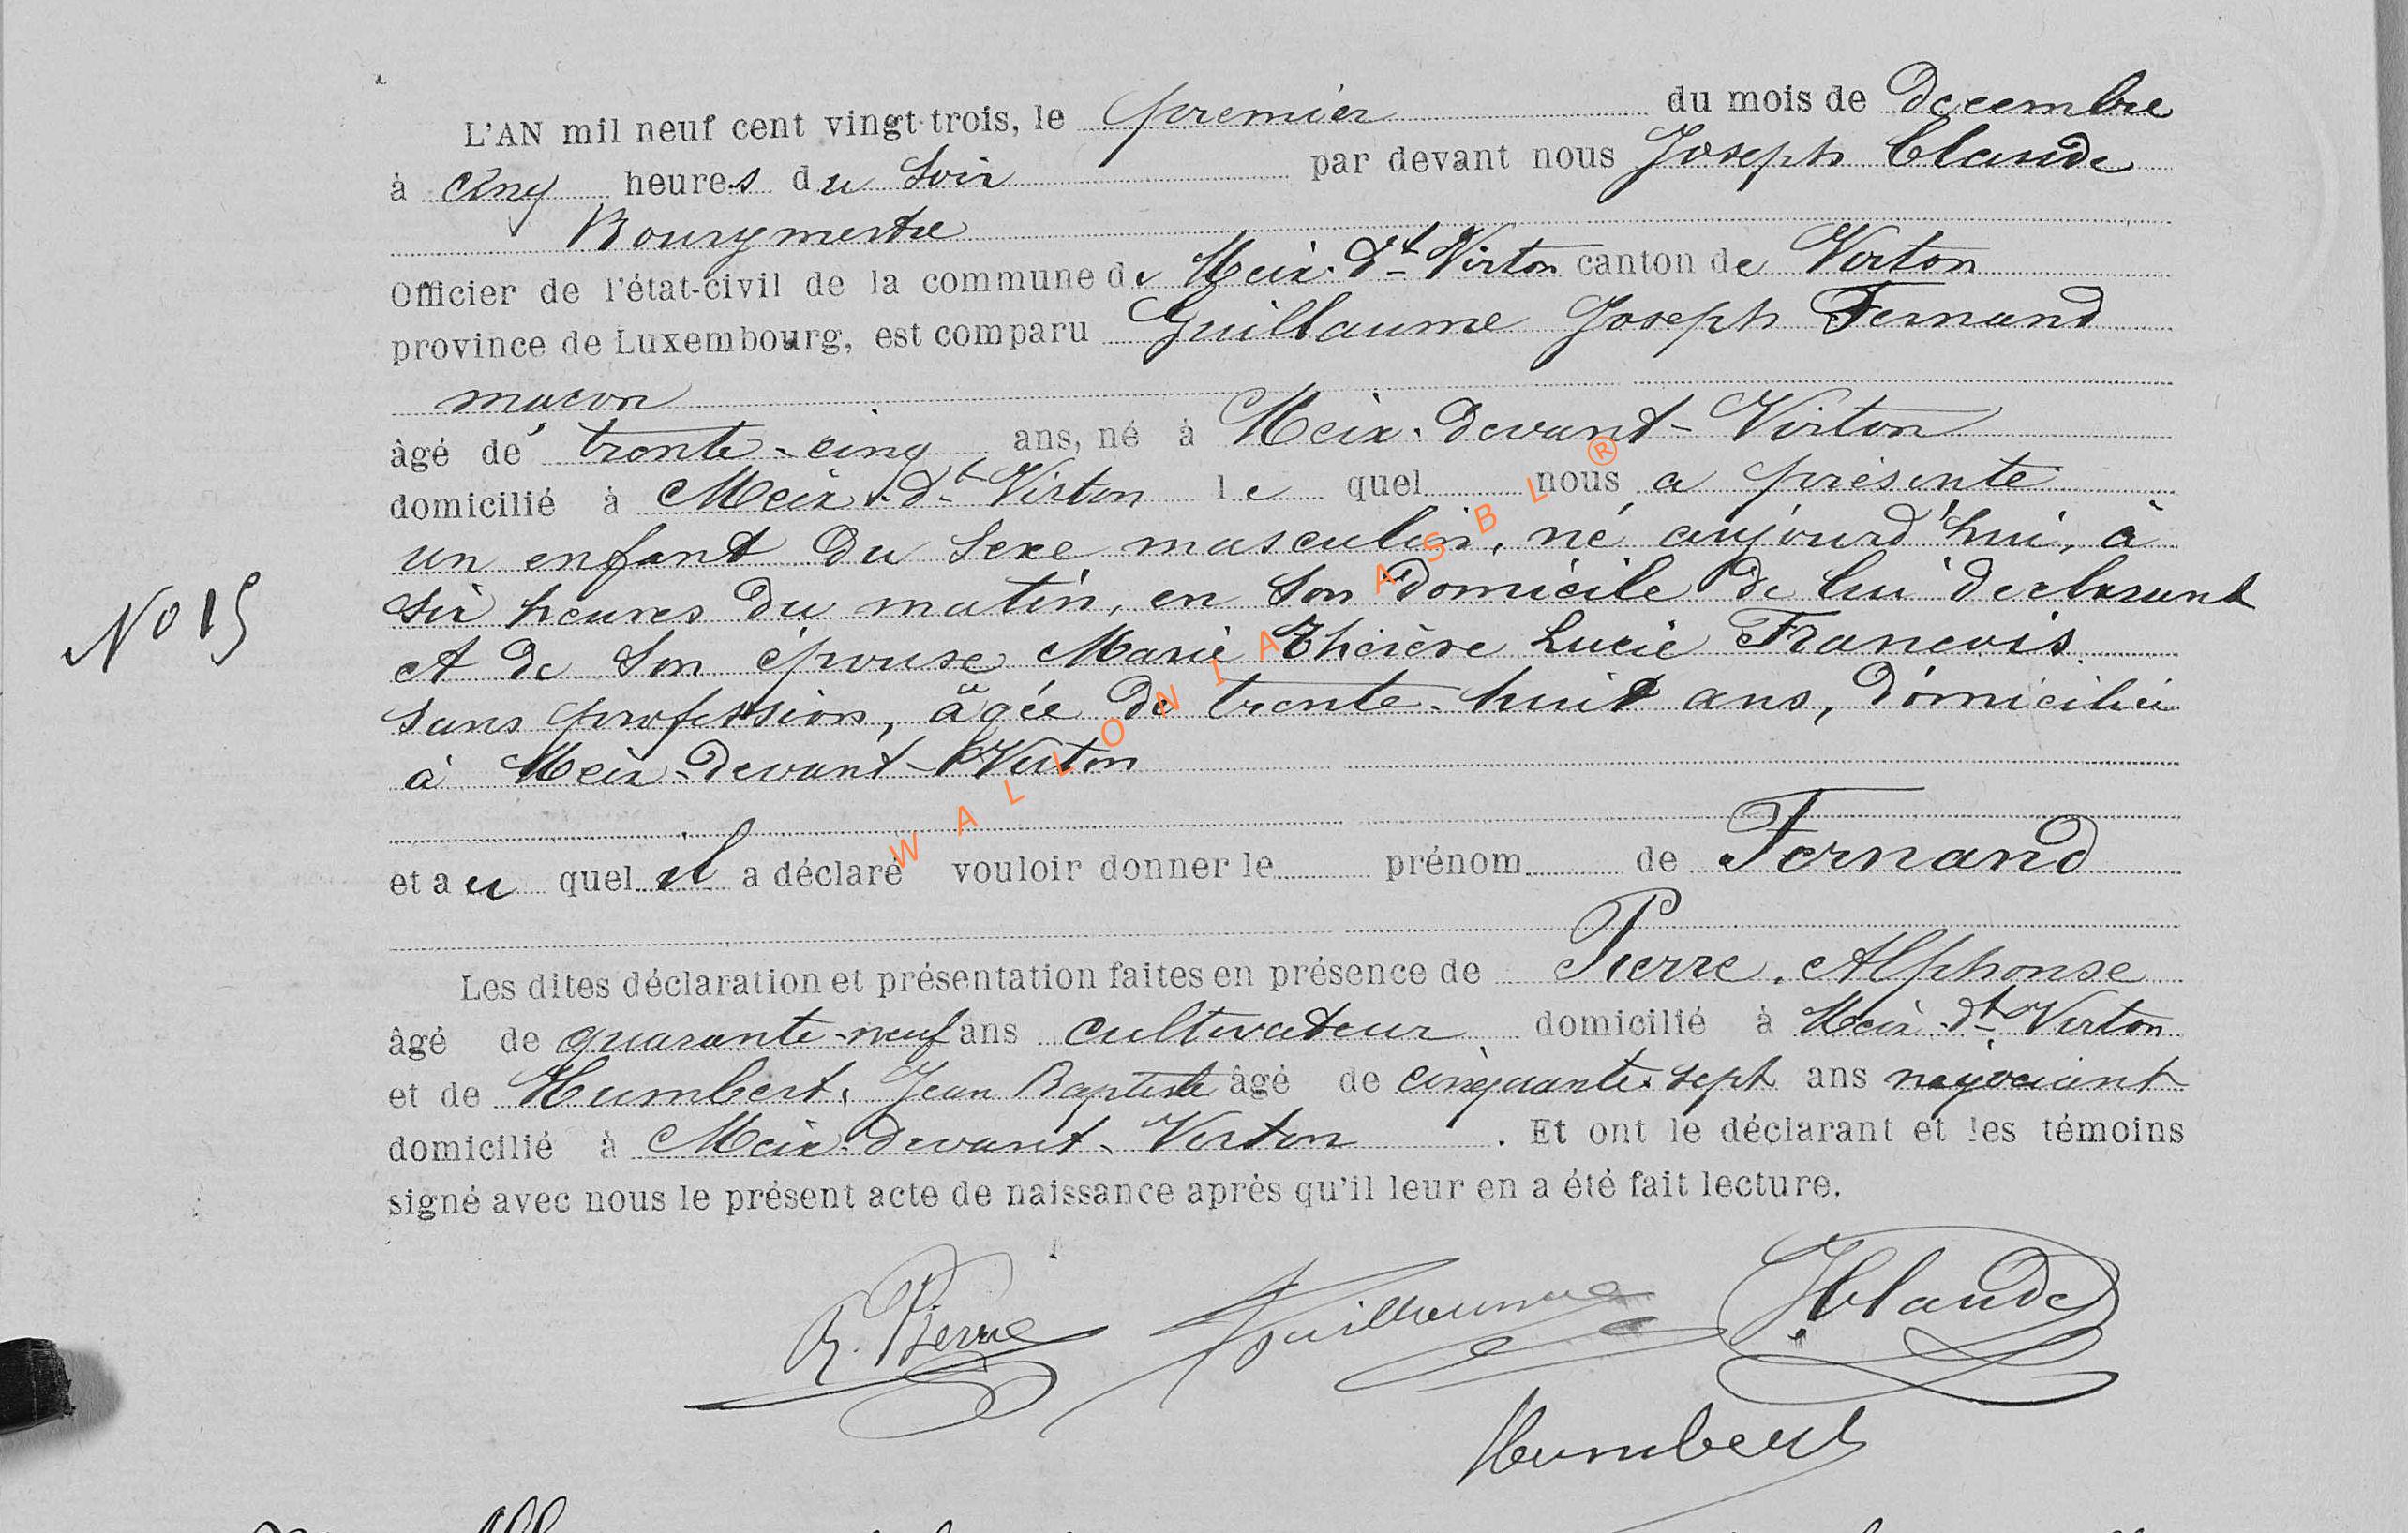 L'AN mil neuf cent vingt-trois, le premier du mois de decembre
à cinq heures du soir par devant nous Joseph Claude
Bourgmestre
Officier de l'état-civil de la commune de Meix-dt-Virton canton de Virton
province de Luxembourg, est comparu Guillaume Joseph Fernand
maçon
âgé de trente-cinq ans, né à Meix-devant-Virton
domicilié à Meix-dt-Virton le quel nous a présenté
un enfant du sexe masculin, né aujourd'hui, à
six heures du matin, en son domicile de lui déclarant
No 15
et de son épouse Marie Thérèse Lucie François
sans profession, âgée de trente-huit ans, domiciliée
à Meix-devant-Virton
et au quel il a déclaré vouloir donner le prénom de Fernand
Les dites déclaration et présentation faites en présence de Pierre, Alphonse
âgé de quarante-neuf ans cultivateur domicilié à Meix-dt-Virton
et de Humbert, Jean Baptiste âgé de cinquante-sept ans négociant
domicilié à Meix-devant-Virton. Et ont le déclarant et les témoins
signé avec nous le présent acte de naissance après qu'il leur en a été fait lecture.
Pierre Guillaume J Claude
Humbert
WALLONIA ASBL ®